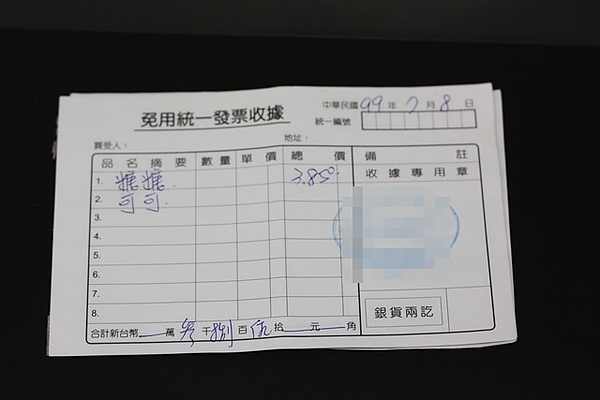 中華民國 99 年 7 月 8 日
免用統一發票收據
統一編號
買受人：
地址：
品名摘要 數量 單價 總價 備註
1. 嬤嬤. 3.850.
收據專用章
2. 可可.
3.
4.
5.
6.
7.
8.
銀貨兩訖
合計新台幣 萬 參 千 捌 百 伍 拾 元 角